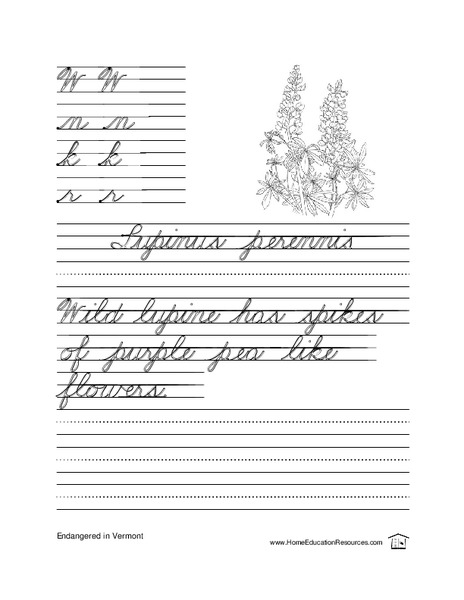 W W
n n
k k
r r
Lupinus perennis
Wild lupine has spikes
of purple pea like
flowers.
Endangered in Vermont
www.HomeEducationResources.com